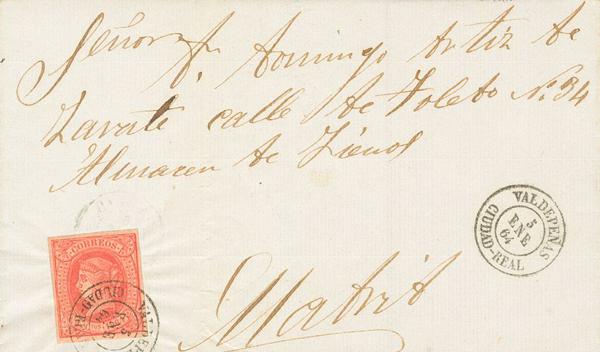 Señor Dn. Domingo Ortiz de
Zarate calle de Toledo No. 94
Almacen de Lienos
VALDEPEÑAS
5
ENE
64
CIUDAD-REAL
CORREOS
VALDEP
CIUDAD-R
Madrid